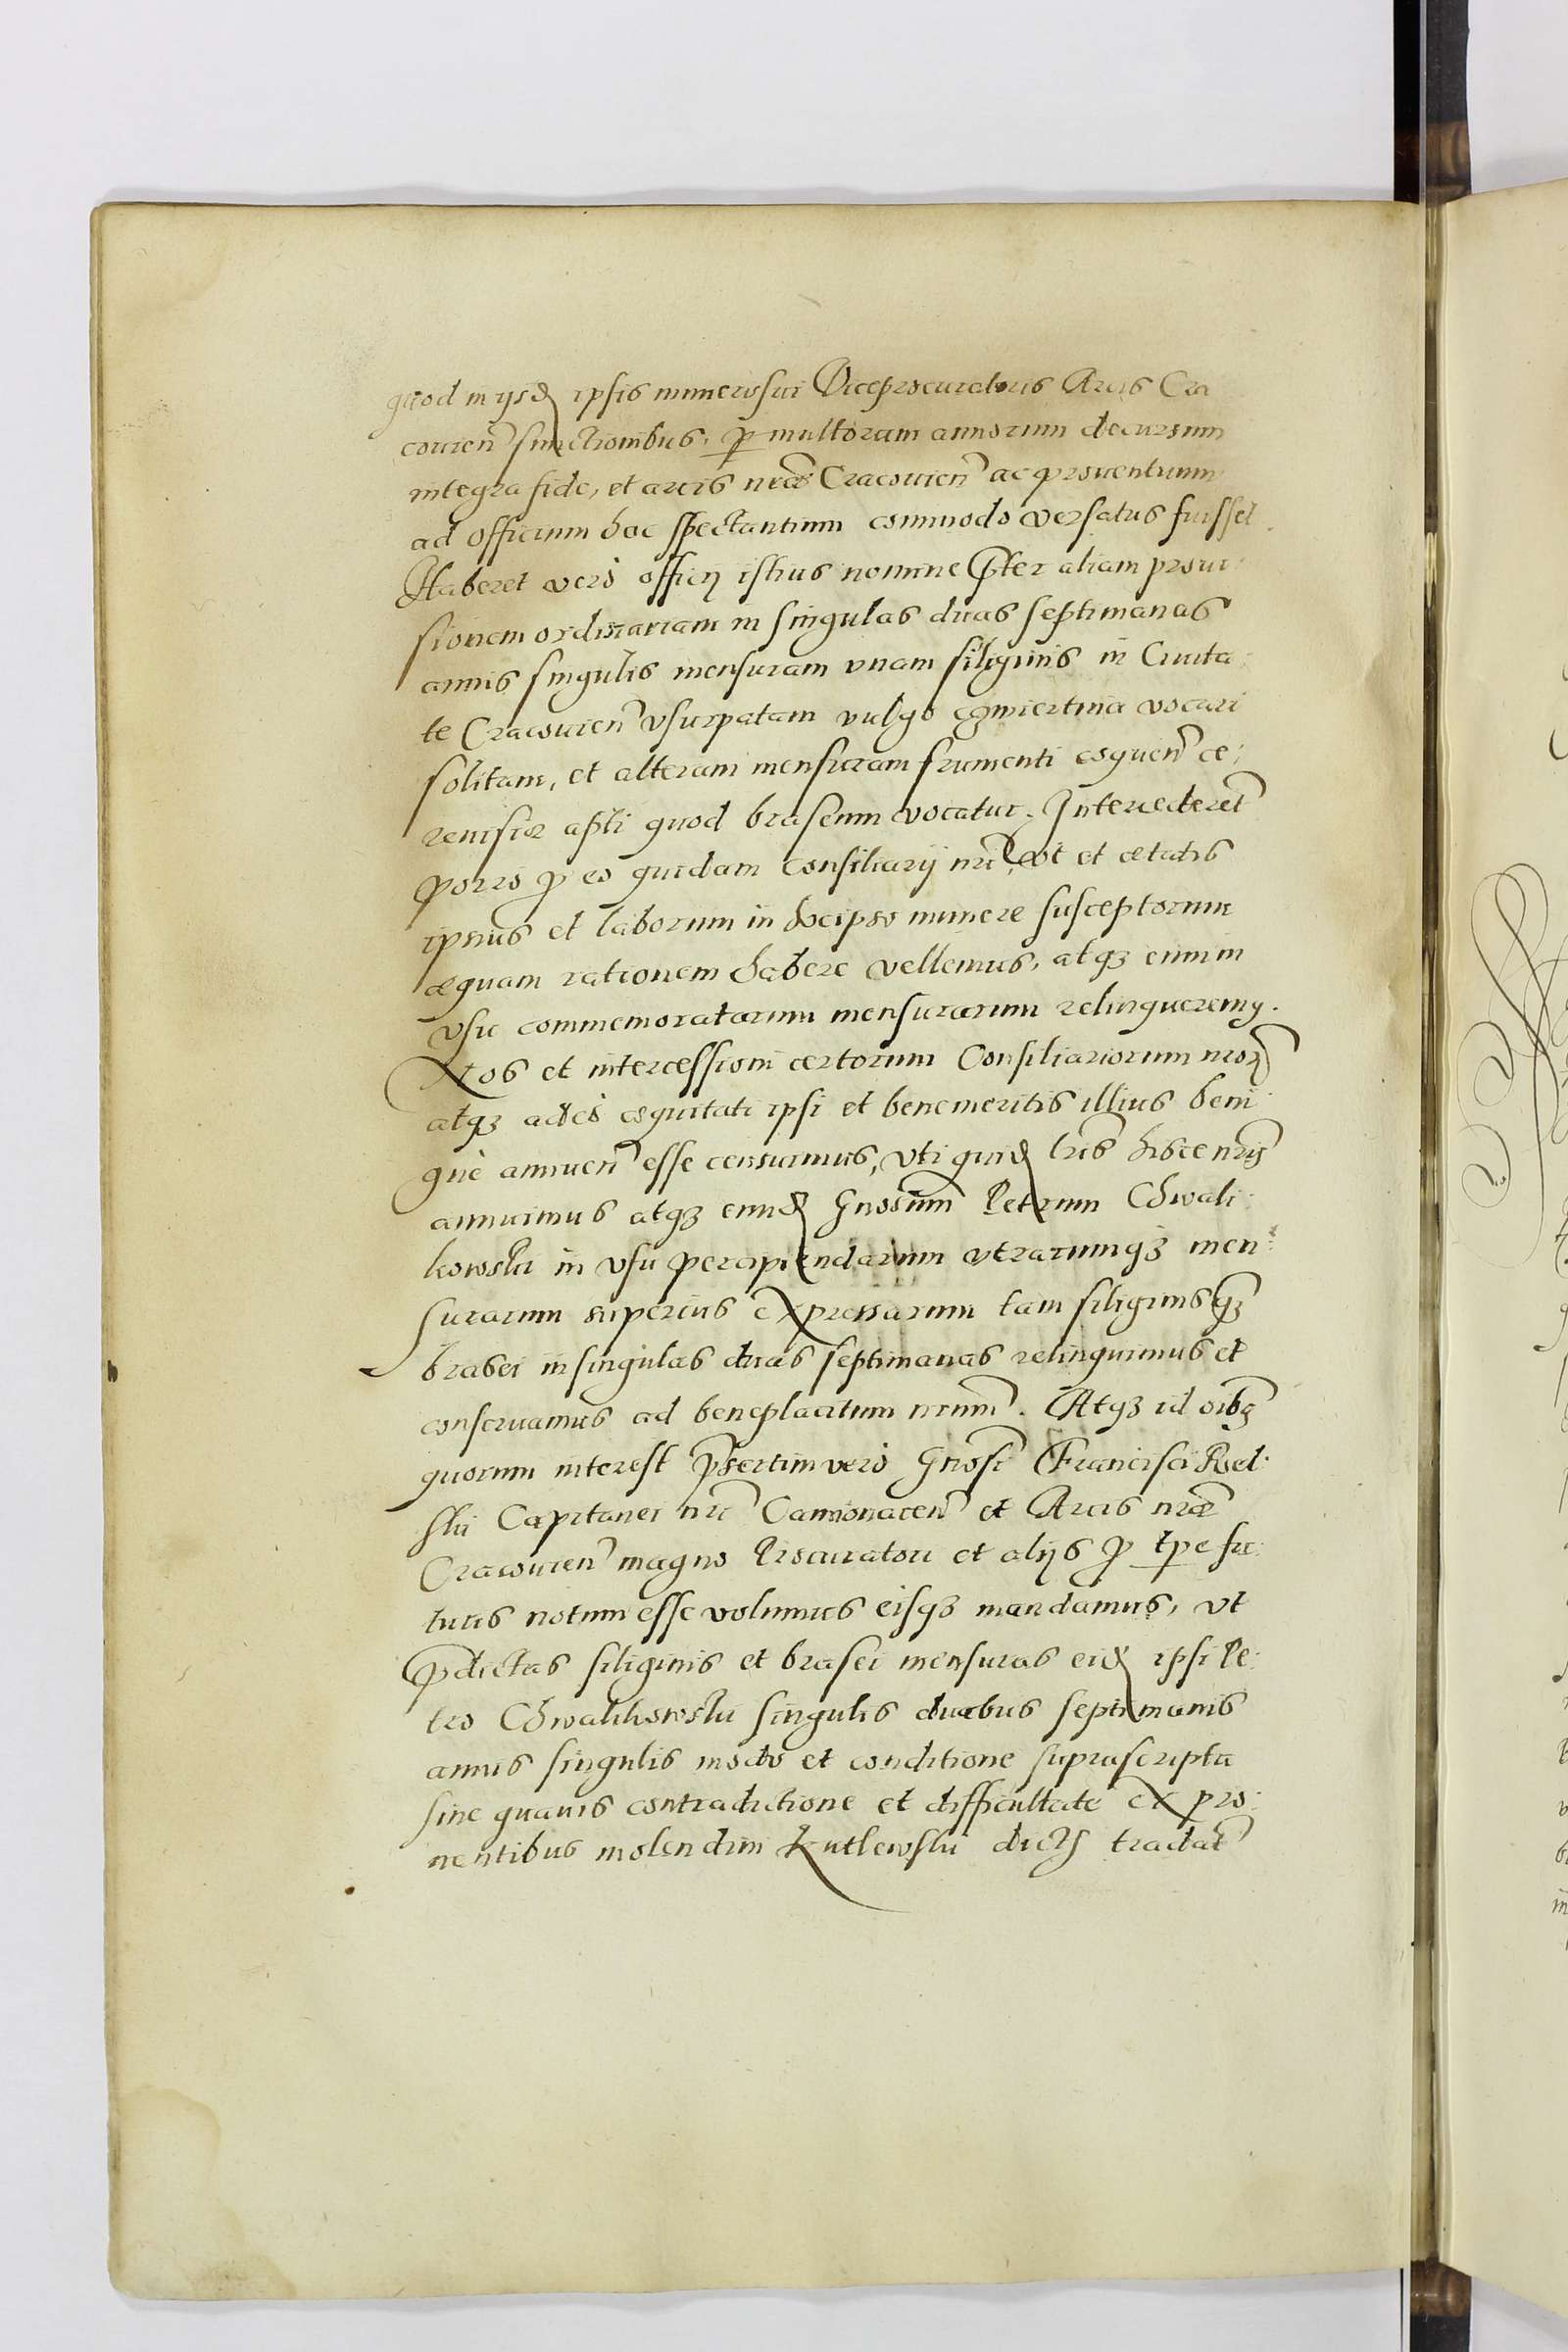 quod in ijsd ipsis muneris sui Viceprocuratoris Arcis Cra
couien functionibus, p multorum annorum decursum
integra fide, et arcis nrae Cracouien ac prouentuum
ad officium hoc spectantium commodo versatus fuisset.
Haberet verò officij istius nomine pter aliam proui:
sionem ordinariam in singulas duas septimanas
annis singulis mensuram vnam siliginis in Ciuita:
te Cracouien vsurpatam vulgo czwiertnia vocari
solitam, et alteram mensuram frumenti coquen ce:
reuisiae apti quod braseum vocatur. Intercederet
porro p eo quidam Consiliarij nri, vt et aetatis
ipsius et laborum in hocipso munere susceptorum
aequam rationem habere vellemus, atqz eum in
vsu commemoratarum mensurarum relinqueremq.
Nos et intercessioni certorum Consiliariorum nror
atqz adeò equitati ipsi et benemeritis illius beni:
gnè annuen esse censuimus, vti quid lris hisce nris
annuimus atqz eund Gnosum Petrum Chwali:
kowski in vsu percipiendarum vtrarumqz men:
surarum superius expressarum tam siliginis qz
brasei in singulas duas septimanas relinquimus et
conseruamus ad beneplacitum nrum. Atqz id oibq
quorum interest psertim verò Gnosi Francisci
ski Capitanei nri Camionacen et Arcis nrae
Cracouien magno Procuratori et alijs p tpe fu:
turis notum esse volumus eisqz mandamus, vt
pdictas siliginis et brasei mensuras eid ipsi Pe:
tro Chwalikowski singulis duabus septimanis
annis singulis modo et conditione suprascripta
sine quauis contradictione et difficultate ex pro:
uentibus molendini Kutlewski dicti tradat